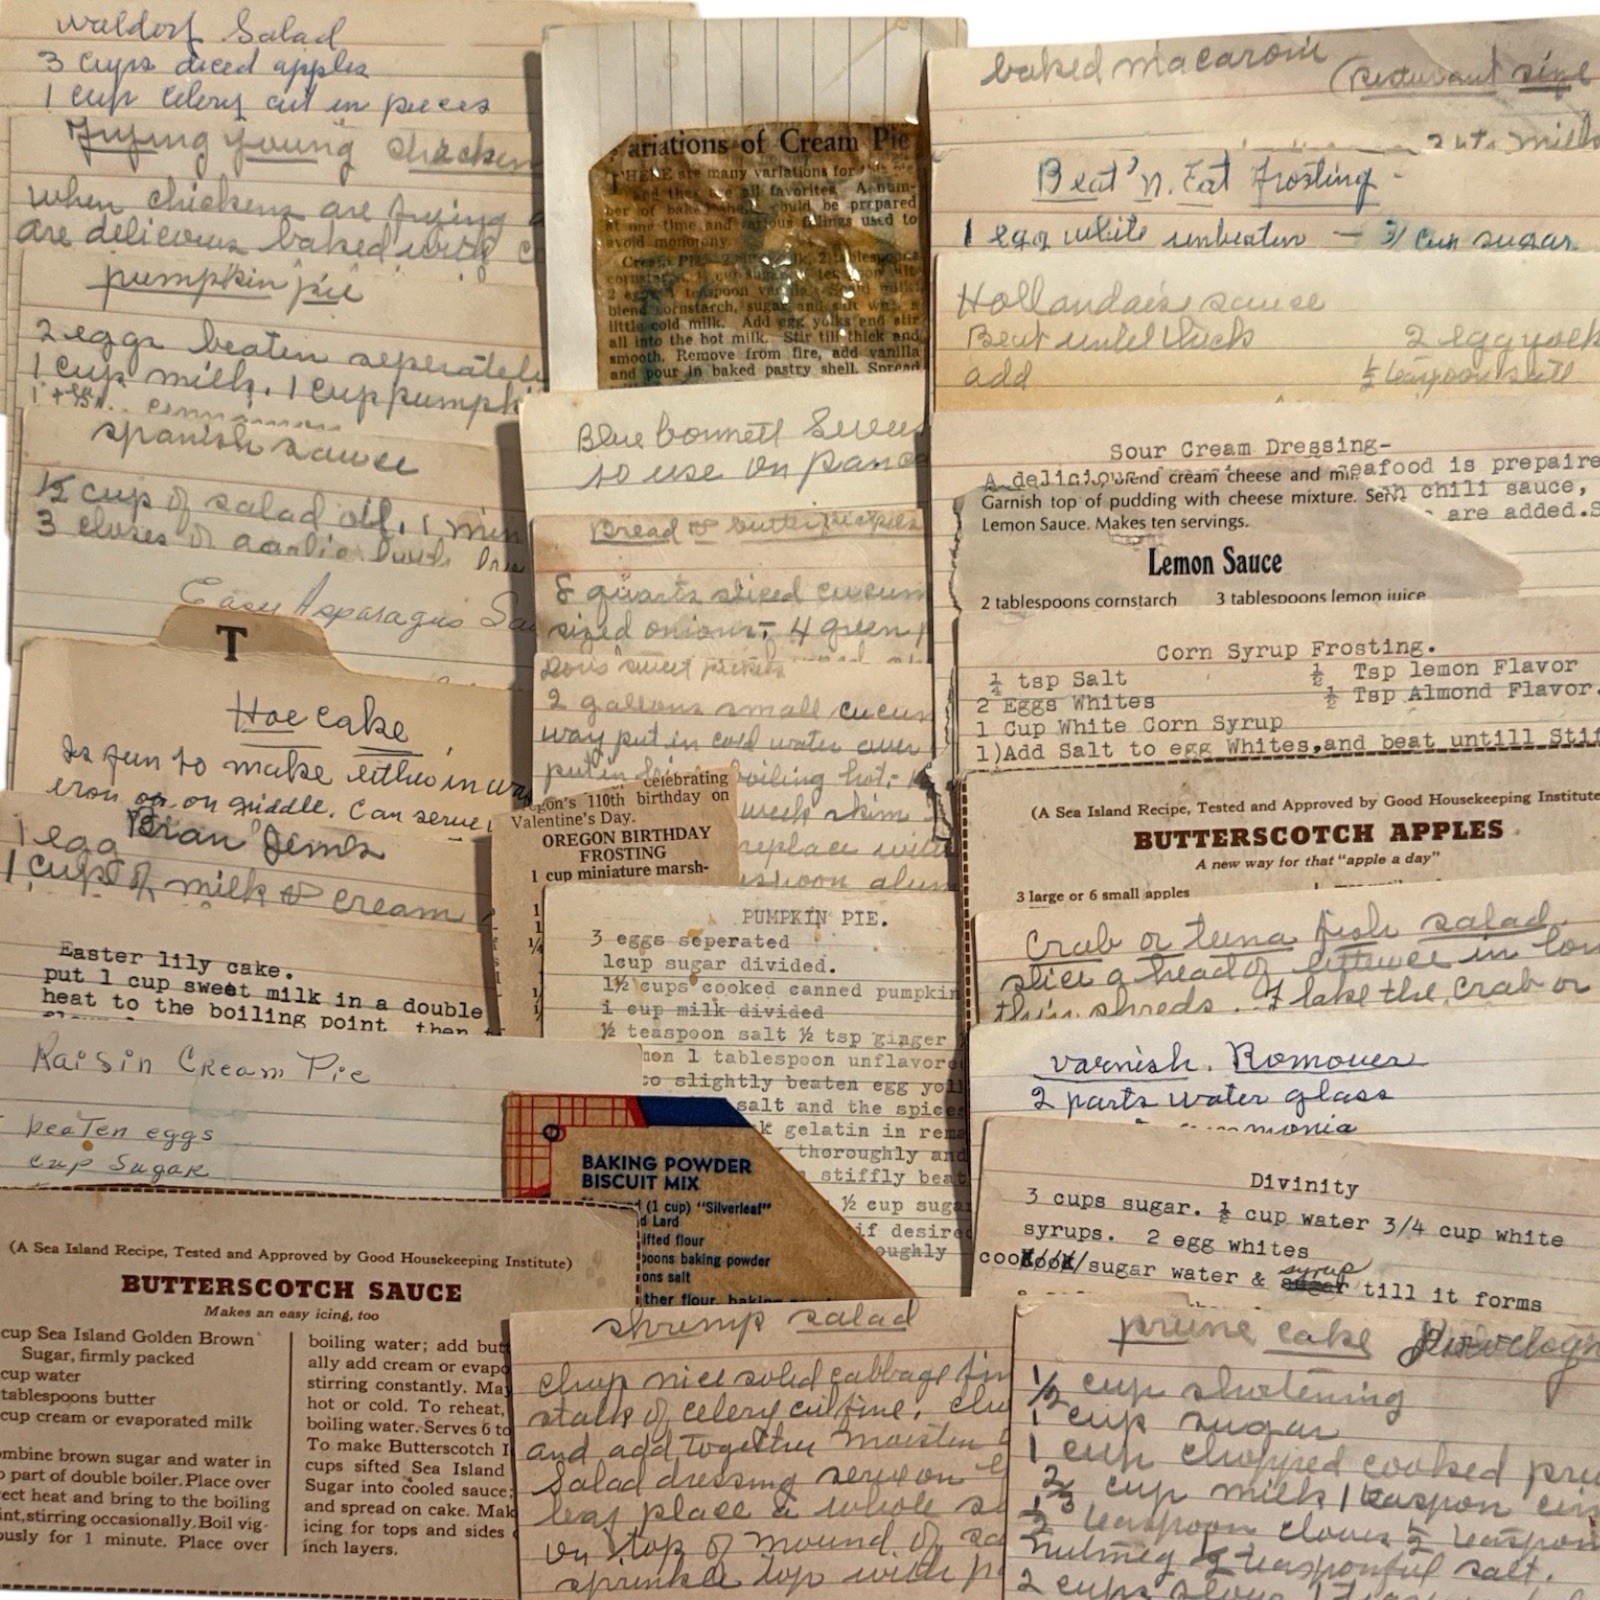 Waldorf Salad
3 cups diced apples
1 cup celery cut in pieces
Frying young chicken
when chickens are frying
are delicious baked with
pumpkin pie
2 eggs beaten seperately
1 cup milk. 1 cup pumpk
spanish sauce
½ cup of salad oil, 1 min
3 cloves of garlic
Easy Asparagus
T
Hoe cake
Is fun to make either in wa
iron or on griddle. Can serve
Bran Jems
1 egg
1 cup of milk or cream
Easter lily cake.
put 1 cup sweet milk in a double
heat to the boiling point then
Raisin Cream Pie
beaten eggs
cup sugar
(A Sea Island Recipe, Tested and Approved by Good Housekeeping Institute)
BUTTERSCOTCH SAUCE
Makes an easy icing, too
cup Sea Island Golden Brown
Sugar, firmly packed
cup water
tablespoons butter
cup cream or evaporated milk
ombine brown sugar and water in
part of double boiler. Place over
ect heat and bring to the boiling
int, stirring occasionally. Boil vig-
ously for 1 minute. Place over
boiling water; add but
ally add cream or evapo
stirring constantly. May
hot or cold. To reheat,
boiling water. Serves 6 to
To make Butterscotch I
cups sifted Sea Island
Sugar into cooled sauce;
and spread on cake. Mak
icing for tops and sides
inch layers.
ariations of Cream Pie
THERE are many variations for
and they are all favorites. A num-
ber of baked shells could be prepared
at one time and various fillings used to
avoid monotony.
blend cornstarch, sugar and salt with a
little cold milk. Add egg yolks and stir
all into the hot milk. Stir till thick and
smooth. Remove from fire, add vanilla
and pour in baked pastry shell. Spread
Blue bonnett
to use on panca
Bread & butter pickels
8 quarts sliced cucum
sized onions; 4 green
sweet
2 gallons small cucum
way put in cold water over
put in boiling hot
week skim
replace with
spoon alum
celebrating
gon's 110th birthday on
Valentine's Day.
OREGON BIRTHDAY
FROSTING
1 cup miniature marsh-
1
1
1¼
1
1
PUMPKIN PIE.
3 eggs seperated
1cup sugar divided.
1½ cups cooked canned pumpkin
1 cup milk divided
½ teaspoon salt ½ tsp ginger
mon 1 tablespoon unflavore
to slightly beaten egg yol
salt and the spice
k gelatin in rema
thoroughly and
stiffly beat
½ cup suga
if desire
oughly
BAKING POWDER
BISCUIT MIX
(1 cup) "Silverleaf"
d Lard
ifted flour
poons baking powder
ons salt
ther flour, baking
shrimp salad
chop nice solid cabbage fin
stalk of celery cut fine,
and add together moisten
salad dressing serve on
leaf place a whole
on top of mound of sa
sprinkle top with
baked macaroni
(resturant size
milk
Beat 'n. Eat Frosting -
1 egg white unbeaten — ¾ cup sugar
Hollandaise sauce
Beat until thick 2 egg yolk
add ½ teaspoon salt
Sour Cream Dressing-
seafood is prepaire
chili sauce,
are added.S
end cream cheese and mi
Garnish top of pudding with cheese mixture. Serv
Lemon Sauce. Makes ten servings.
Lemon Sauce
2 tablespoons cornstarch 3 tablespoons lemon juice
Corn Syrup Frosting.
¼ tsp Salt ½ Tsp lemon Flavor
2 Eggs Whites ½ Tsp Almond Flavor.
1 Cup White Corn Syrup
1)Add Salt to egg Whites,and beat untill Stif
(A Sea Island Recipe, Tested and Approved by Good Housekeeping Institute
BUTTERSCOTCH APPLES
A new way for that "apple a day"
3 large or 6 small apples
Crab or tuna fish salad.
slice a head of lettuce in lon
thin shreds. Flake the crab or
Varnish. Romover
2 parts water glass
monia
Divinity
3 cups sugar. ½ cup water 3/4 cup white
syrups. 2 egg whites
cook sugar water & syrup till it forms
prune cake
½ cup shortening
1 cup sugar
1 cup chopped cooked pru
⅔ cup milk 1 teaspon cin
½ teaspoon cloves ½ teaspon
nutmeg ½ teasponful salt.
2 cups flour